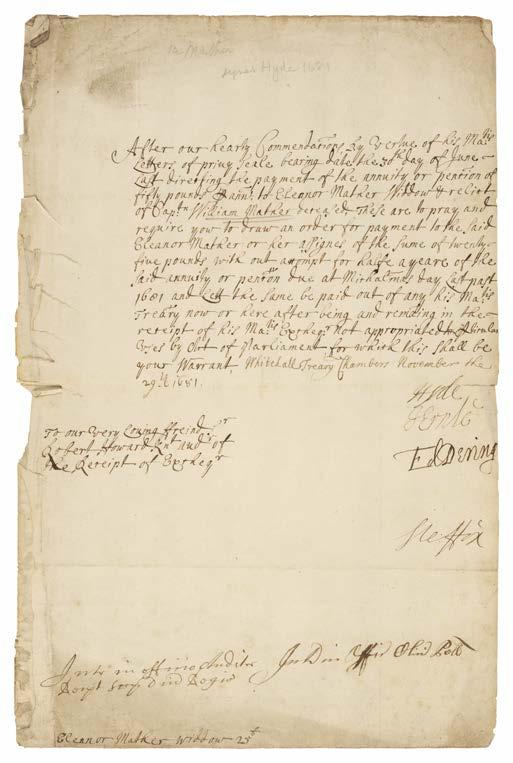 Mather
Hyde 1681
After our hearty Commendations by Vertue of his Ma.ties
Letters of privy Seale bearing date the 30th day of June
Last directing the payment of the annuity or pension of
fifty pounds p Ann: to Eleonor Mather Widdow & relict
of Capt.n William Mather deceased These are to pray and
require you to draw an order for payment to the said
Eleanor Mather or her assignes of the Sume of twenty-
five pounds with out accompt for halfe a yeare of the
said annuity or pencon due at Michalmas day Last past
1681 and Lett the Same be paid out of any his Ma.ties
Treary now or here after being and remaing in the
receipt of his Ma.ties Excheqr not appropriated to pticular
Uses by Act of Parliament for which this shall be
your Warrant Whitehall Treary Chambers November the
29th 1681.
Hyde
JErnle
EdDering
SteFfox
To our Very Loving ffreind Sr
Robert Howard Knt Audr of
the Receipt of Excheqr
Intr in officio Auditor
Recept Dni Regis
Int in Offic
Eleanor Mather widdow 25£